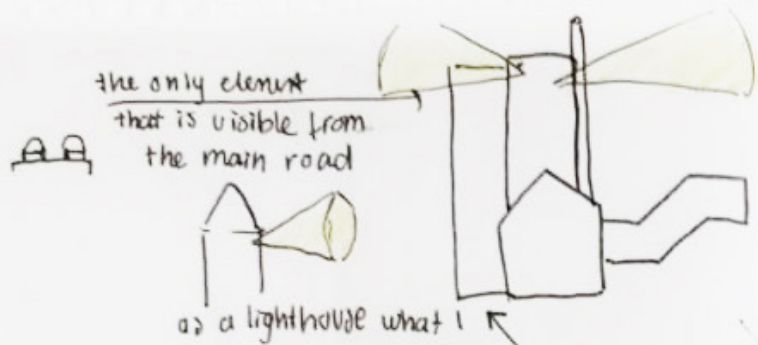 the only element
that is visible from
the main road
as a lighthouse what I